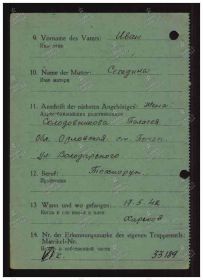 9. Vorname des Vaters: Иван
Имя отца
10. Name der Mutter: Середина
Имя матери
11. Anschrift der nächsten Angehörigen: Жена
Адрес ближайших родственников
Солодовникова Пелагея
Обл. Орловская ст. Почеп
ул Володарского
12. Beruf:
Профессия
13. Wann und wo gefangen: 19.5.42
Когда и где взят в плен Харьков
14. Nr. der Erkennungsmarke des eigenen Truppenteils
Matrikel-Nr.
33189